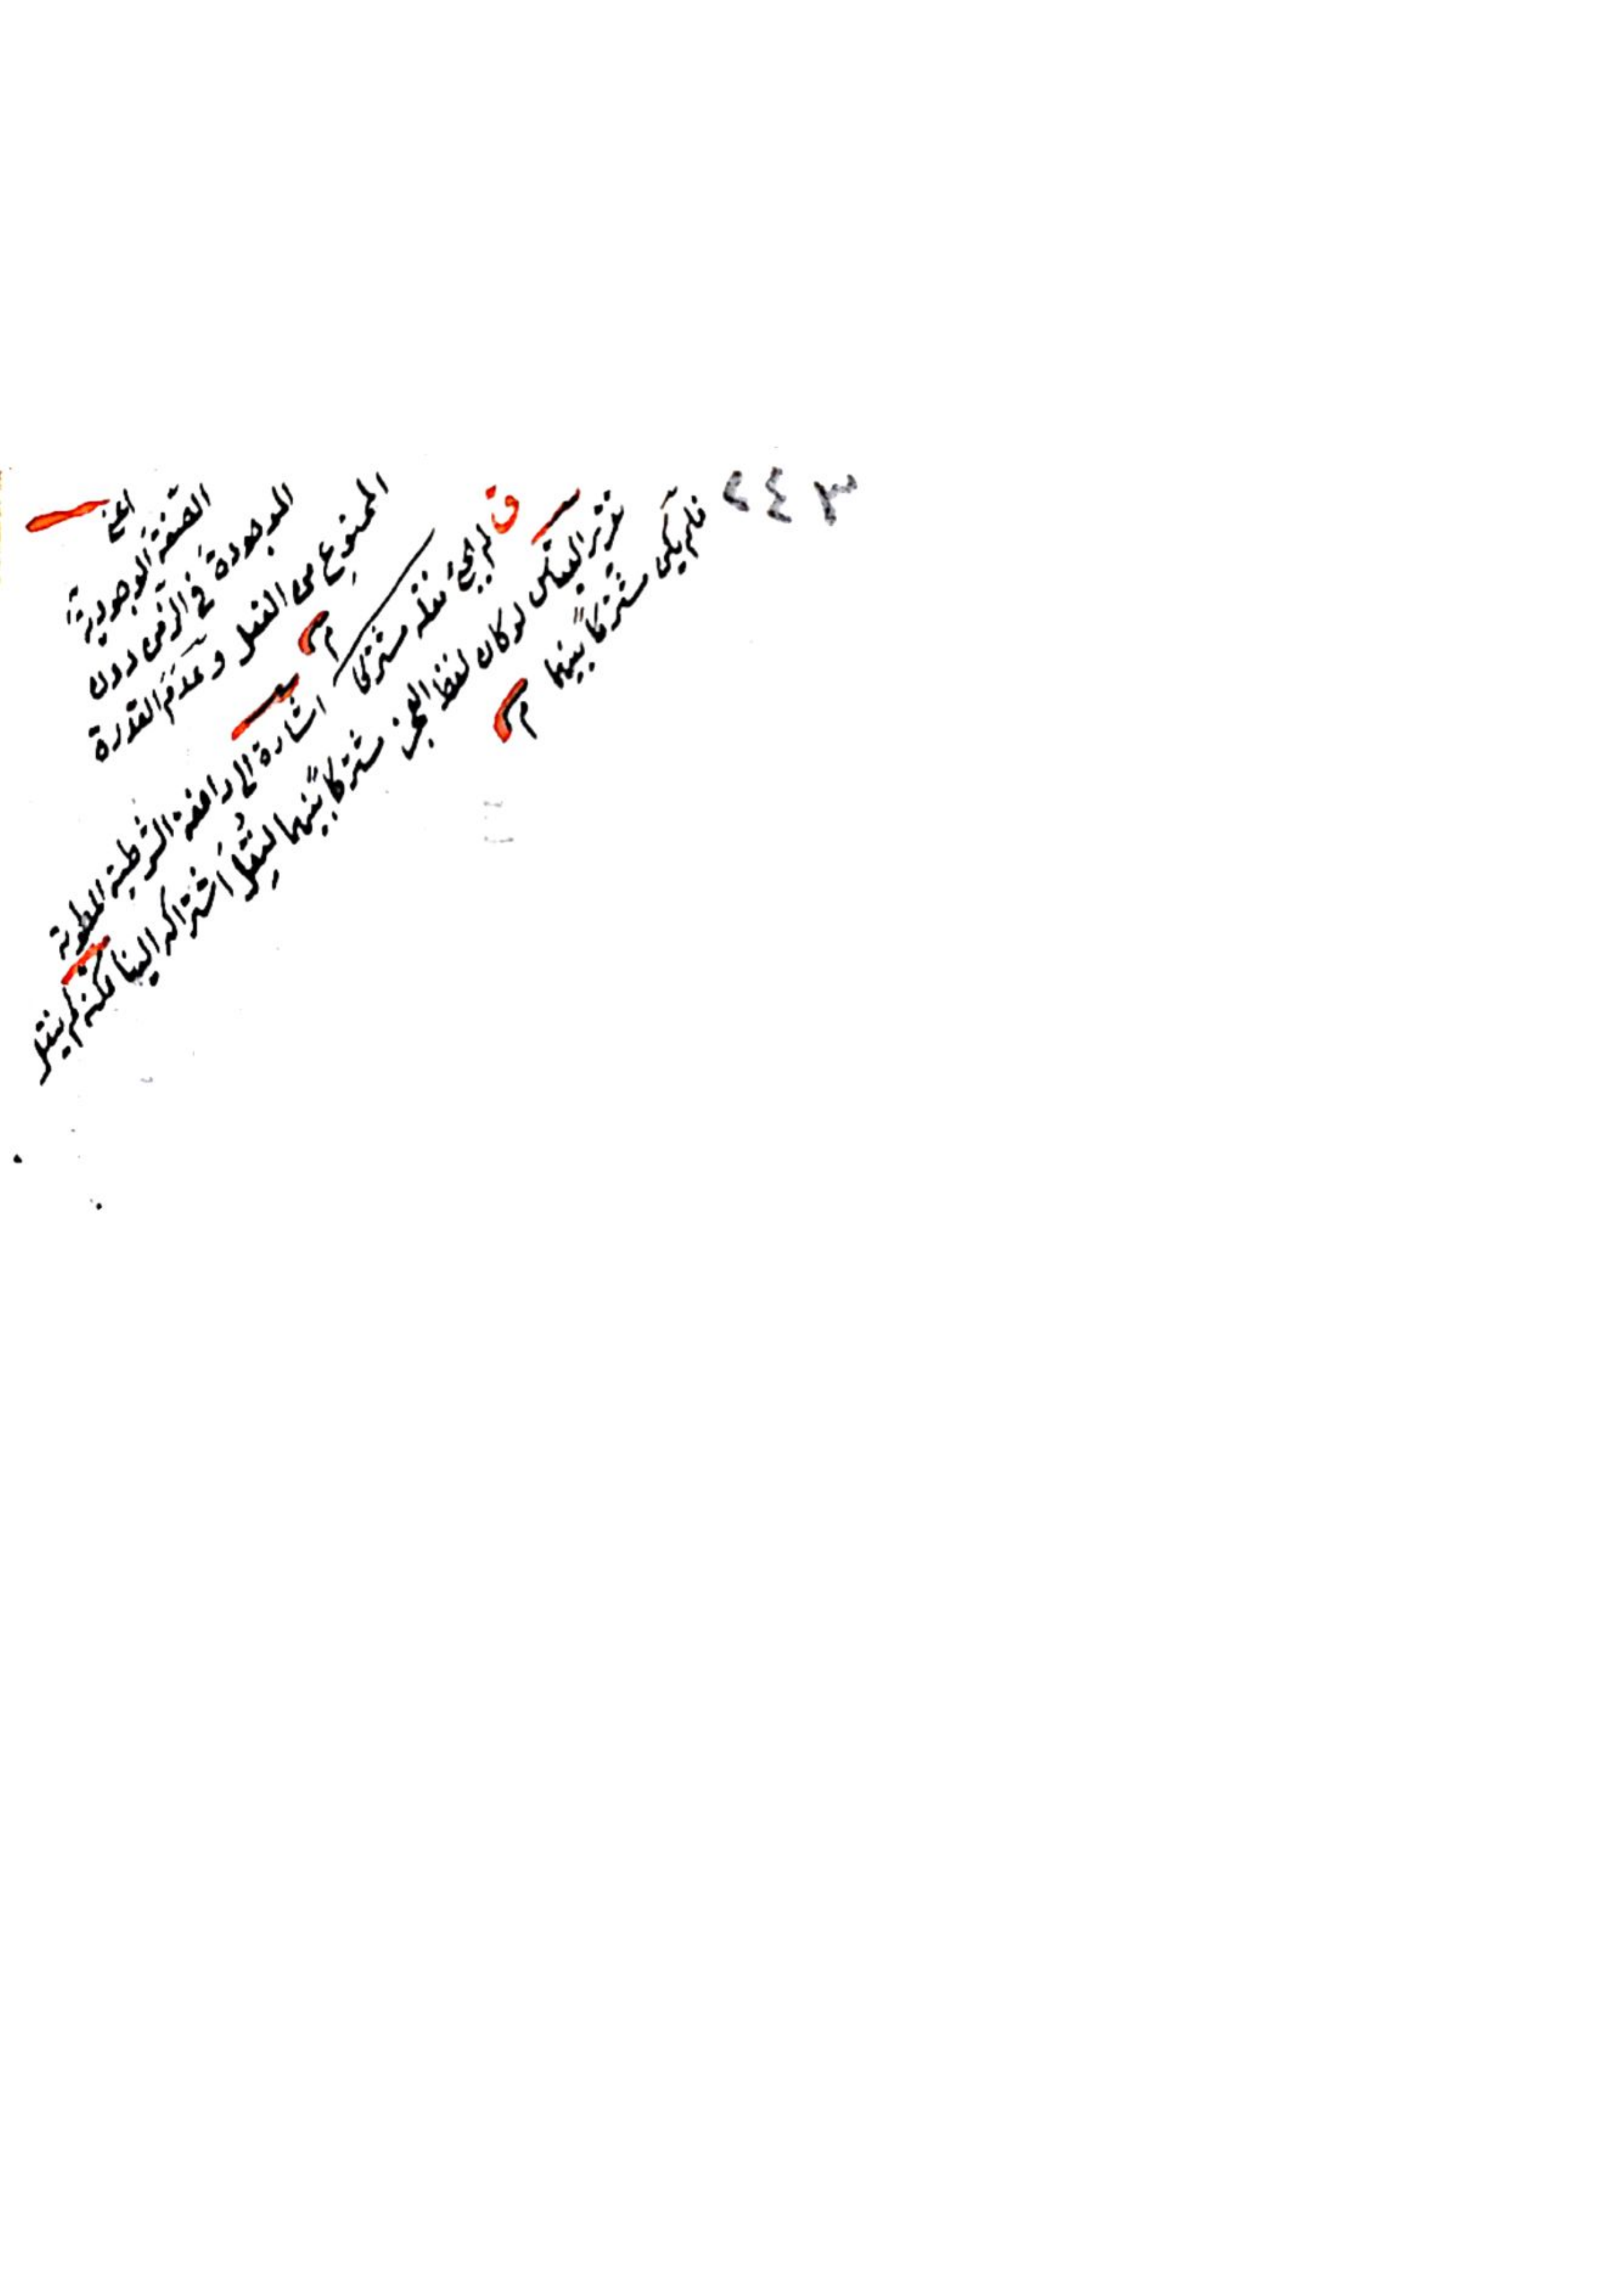 ٢٤٣
اعني
الصفة الوجودية
الموجودة في الزمن دون
الممنوع من الفعل وعدم القدرة
م
ق
لم يجئ نقله مشتركا
اشارة الى رافعة الشرطية المطوية
تقرير القياس لو كان لفظ العجز مشتركا بينهما لنقل اشتراكه الينا لكنه لم ينقل
فلم يكن مشتركا بينهما
م